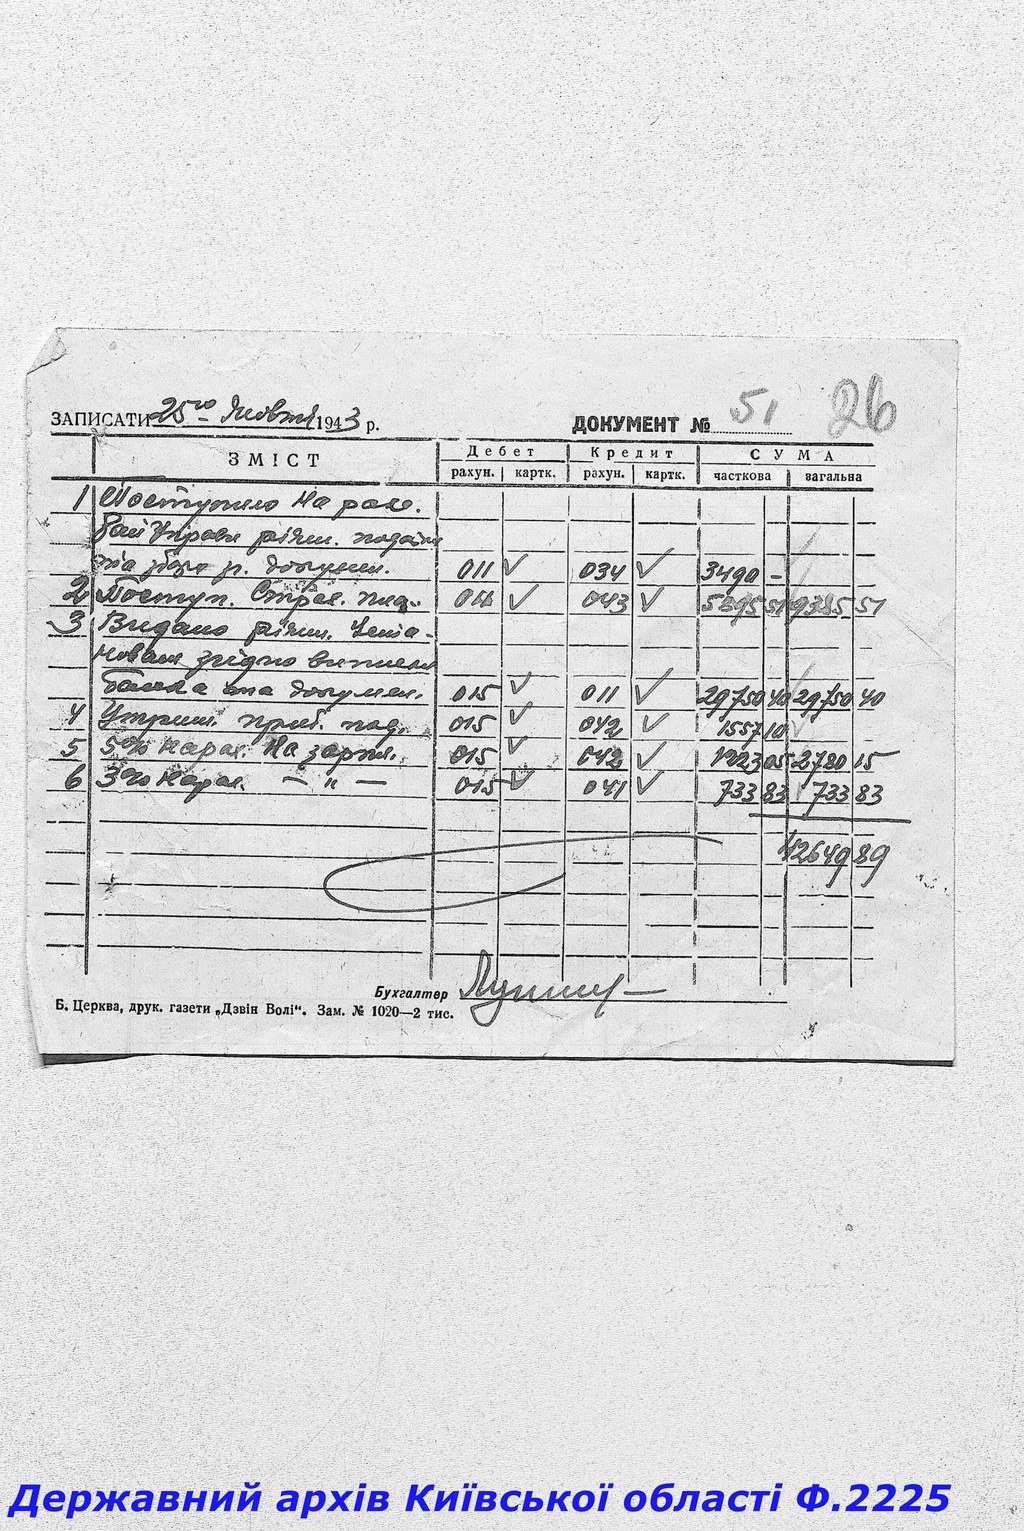 26
ЗАПИСАТИ 25го Жовтня 1943 р. ДОКУМЕНТ № 51
ЗМІСТ Дебет Кредит СУМА
рахун. картк. рахун. картк. часткова загальна
1 Поступило на рах.
Рай Управи різн. податк
та збор зг. докумен.
011 ✓ 034 ✓ 3490 -
2 Поступ. Страх. под. 011 ✓ 043 ✓ 5895 51 9385 51
3 Видано різн.
новам згідно виписки
банка та докумен. 015 ✓ 011 ✓ 29750 40 29750 40
4 Утрим. приб. под. 015 ✓ 042 ✓ 1557 10
5 5% нарах. на зарпл. 015 ✓ 042 ✓ 1223 05 2780 15
6 3% нарах. — " — 015 ✓ 041 ✓ 733 83 733 83
42649 89
Бухгалтер
Б. Церква, друк. газети „Дзвін Волі“. Зам. № 1020—2 тис.
Державний архів Київської області Ф.2225